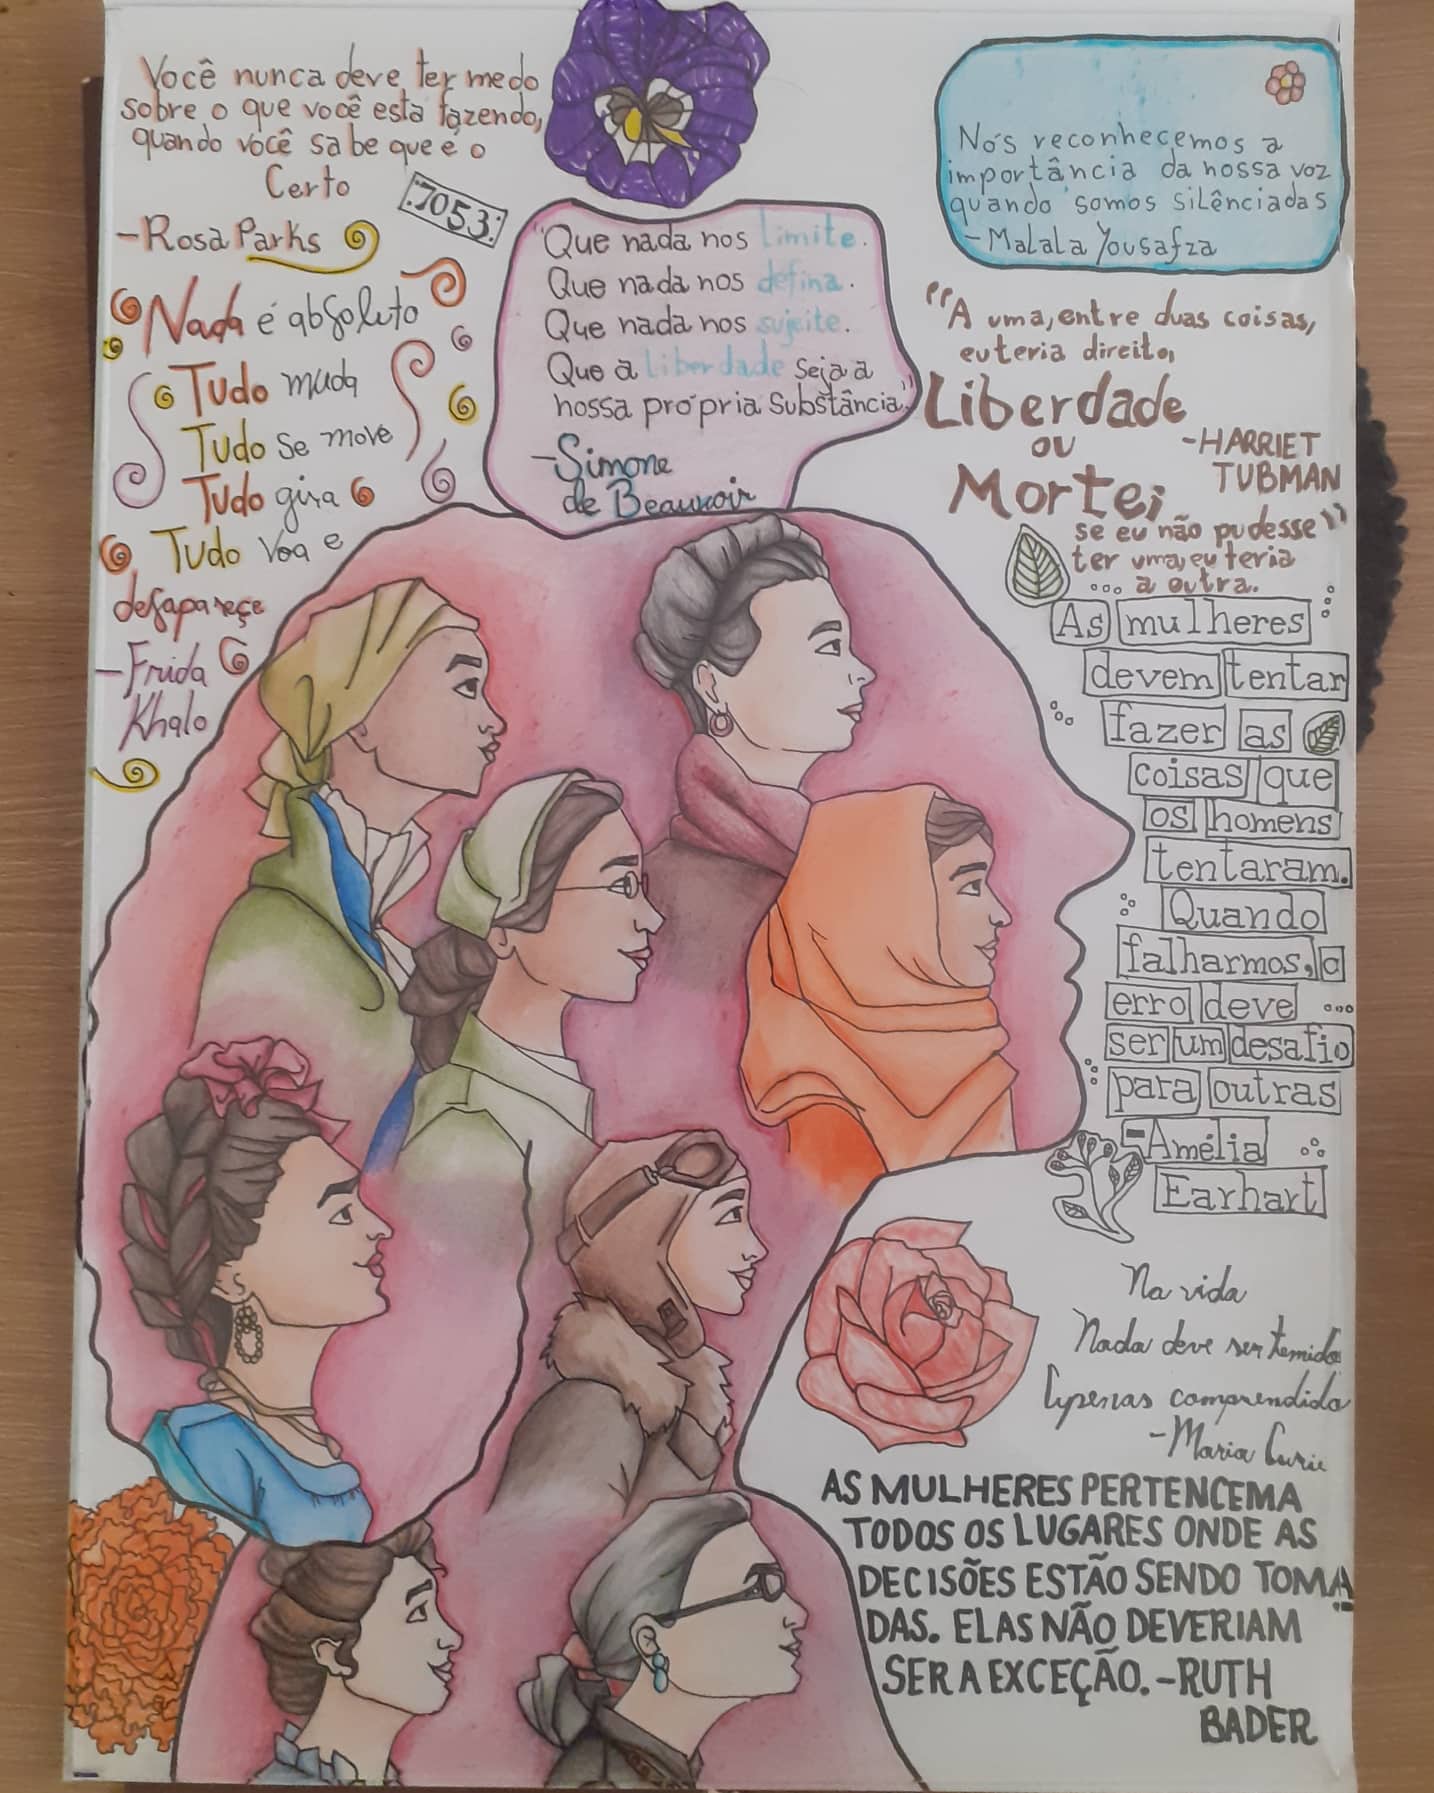 Você nunca deve ter medo
sobre o que você esta fazendo,
quando você sabe que e o
Certo
-Rosa Parks
:7053:
Nada é absoluto
Tudo muda
Tudo se move
Tudo gira
Tudo voa e
desapareçe
-Frida
Khalo
"Que nada nos limite.
Que nada nos defina.
Que nada nos sujeite.
Que a liberdade seja a
nossa própria substância."
-Simone
de Beauvoir
Nós reconhecemos a
importância da nossa voz
quando somos silênciadas
-Malala Yousafza
"A uma, entre duas coisas,
eu teria direito,
Liberdade
ou
Morte;
se eu não pudesse"
ter uma, eu teria
a outra.
-HARRIET
TUBMAN
As mulheres
devem tentar
fazer as
coisas que
os homens
tentaram.
Quando
falharmos, o
erro deve
ser um desafio
para outras
-Amélia
Earhart
Na vida
Nada deve ser temido
Apenas comprendido
-Maria Curie
AS MULHERES PERTENCEM A
TODOS OS LUGARES ONDE AS
DECISÕES ESTÃO SENDO TOMA
DAS. ELAS NÃO DEVERIAM
SER A EXCEÇÃO. -RUTH
BADER